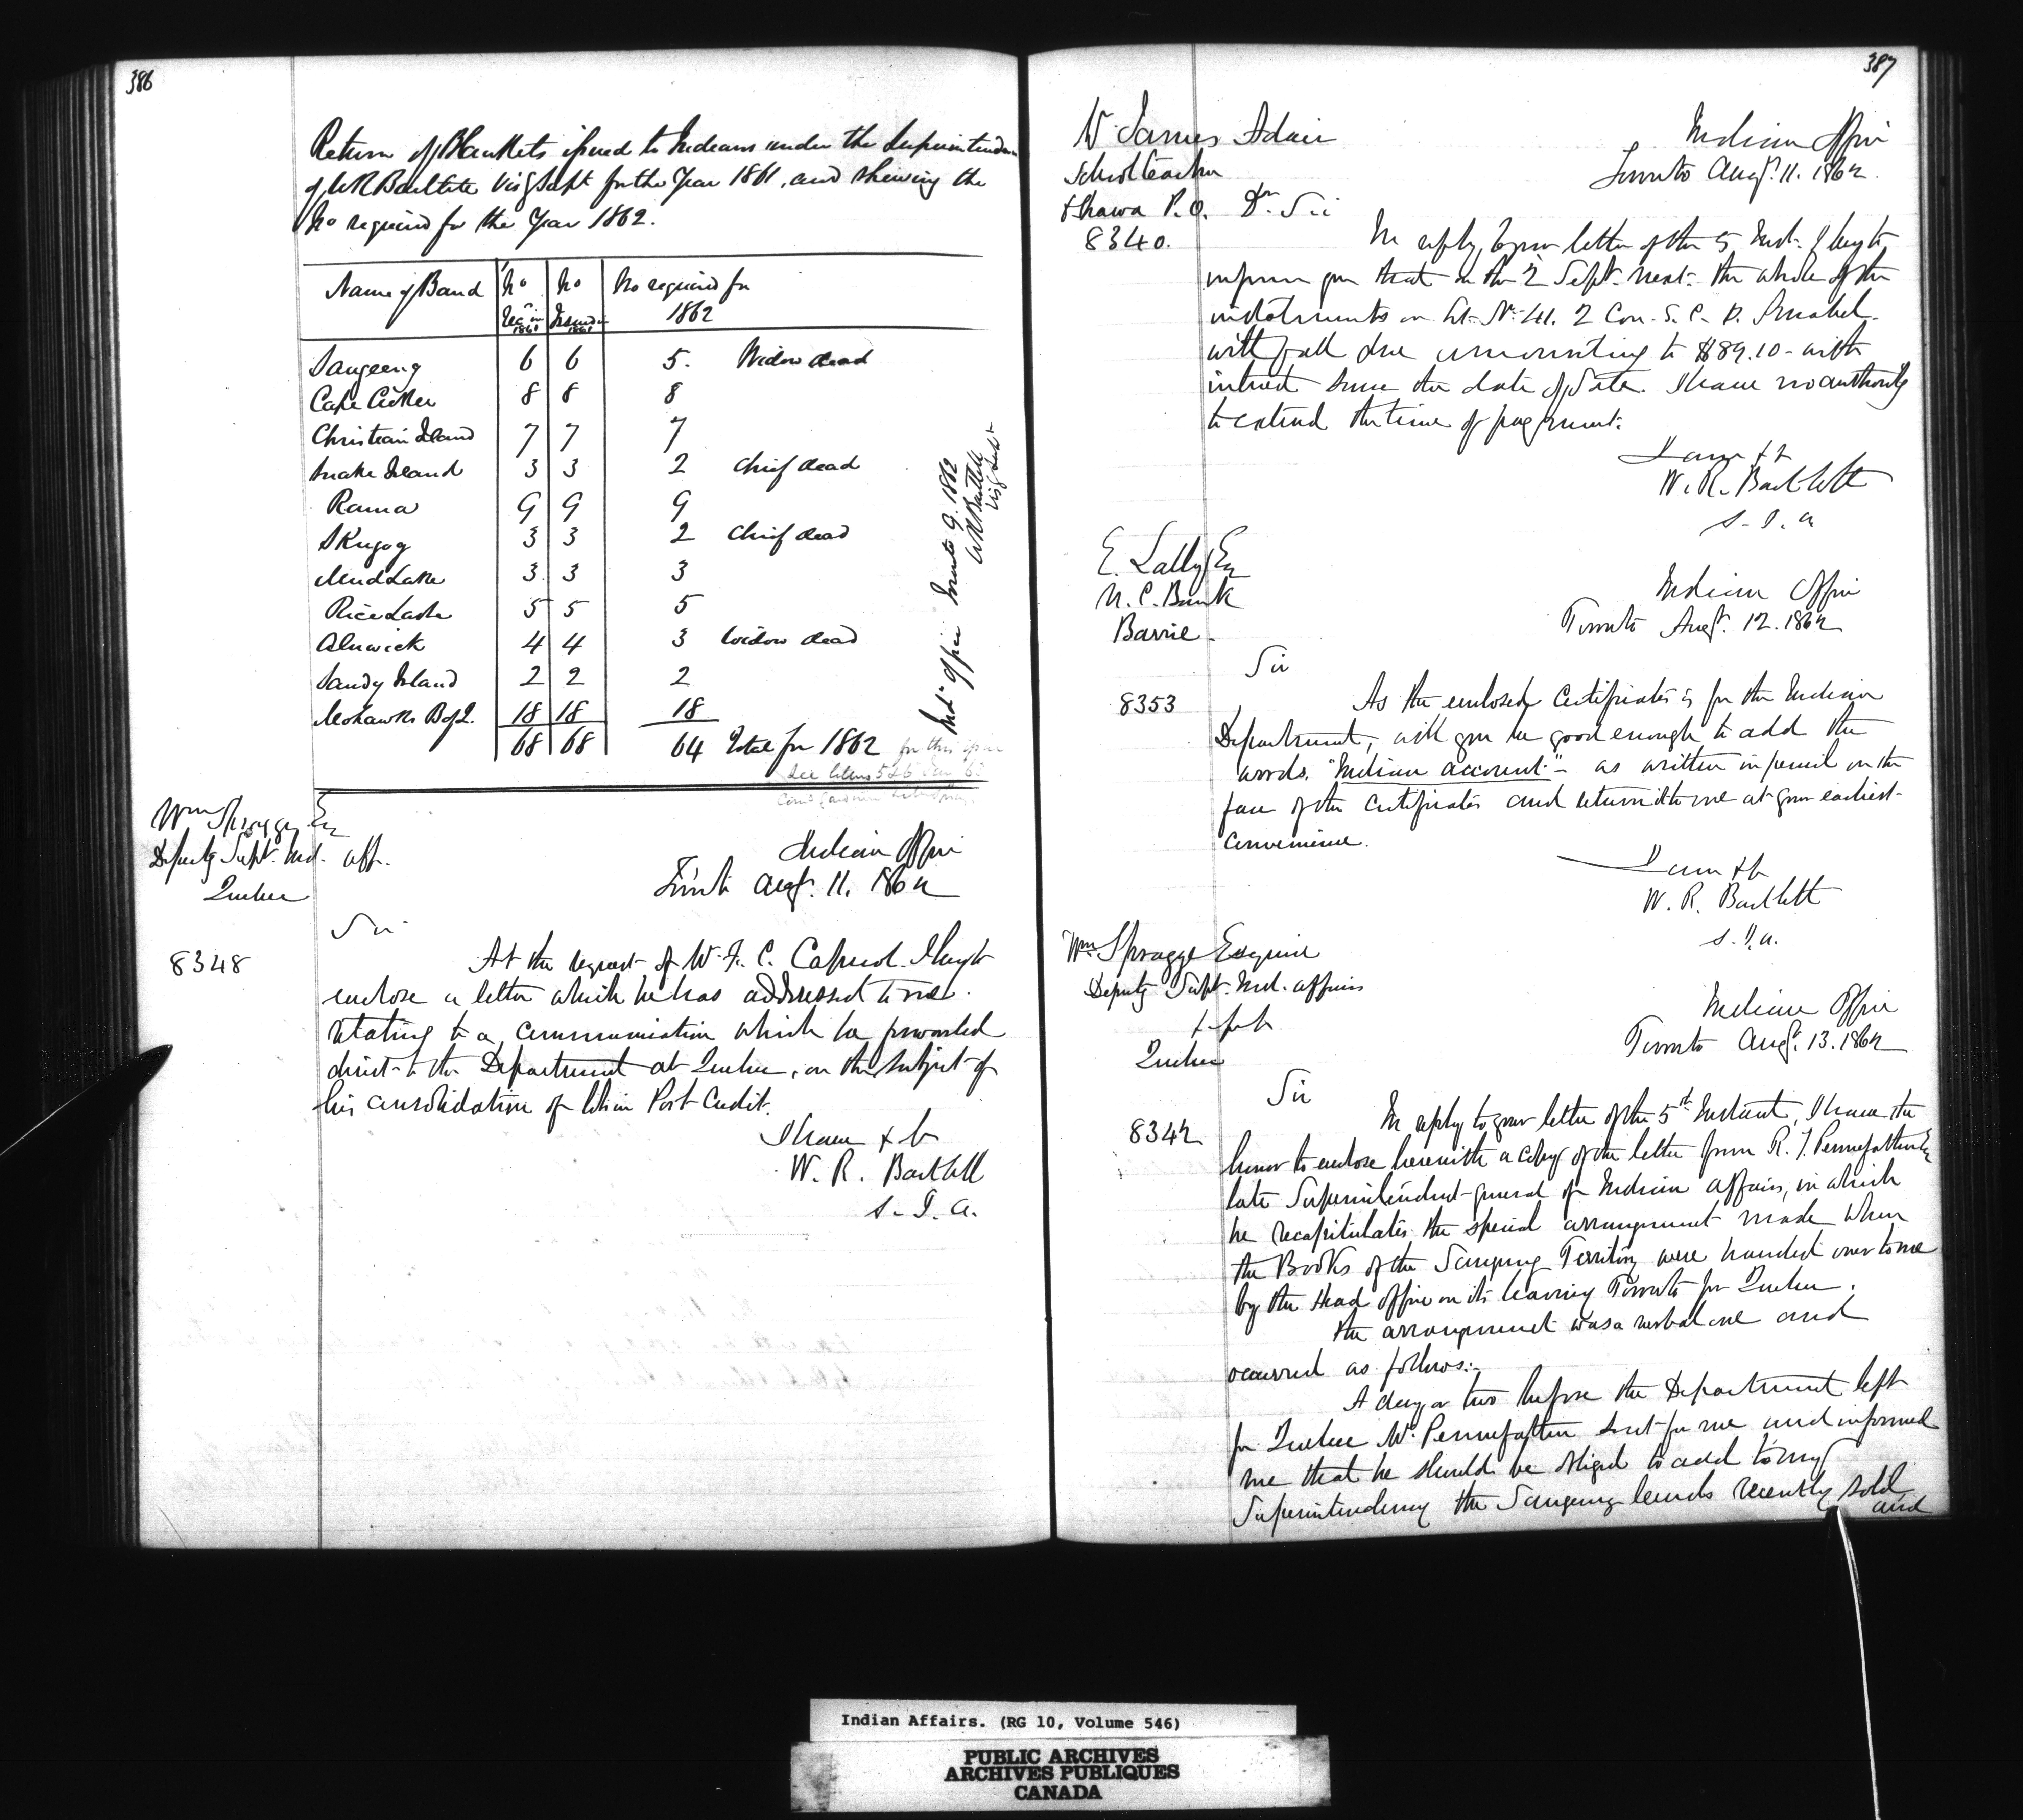 386
Return of Blankets issued to Indians under the Superintenden
of W R Bartlett Vis'g Supt for the Year 1861, and shewing the
No required for the Year 1862.
Name of Band No Rec'd in 1861 No Issued in 1861 No required for 1862
Saugeeng 6 6 5. Widow dead
Cape Croker 8 8 8
Christian Island 7 7 7
Snake Island 3 3 2 Chief dead
Rama 9 9 9
Skugog 3 3 2 Chief dead
Mud Lake 3 3 3
Rice Lake 5 5 5
Alnwick 4 4 3 Widow dead
Sandy Island 2 2 2
Mohawks B of Q. 18 18 18
68 68 64 Total for 1862
Ind' Office Toronto 9. 1862
W R Bartlett
Vis'g Supt
Wm Spragge Esq
Deputy Supt. Ind. Aff.
Quebec
Indian Office
Toronto Augt. 11. 1862
Sir
8348
At the request of Mr. F. C. Capreol. I beg to
enclose a letter which he has addressed to me.
relating to a communication which he forwarded
direct to the Department at Quebec, on the subject of
his consolidation of Colonization Port Credit.
I have &c
W. R. Bartlett
S. I. A.
387
Mr James Adair
School teacher
P.O.
8340.
Indian Office
Toronto Augt. 11. 1862
Dr Sir
In reply to your letter of the 5 Inst. I beg to
inform you that on the 2 Sept. next. the whole of the
instalments on Lt. No. 41. 2 Con. S. C. D. Amabel
will fall due amounting to $89.10 - with
interest since the date of Sale. I have no authority
to extend the time of payment.
I am &c
W. R. Bartlett
S. I. A
E. Lally Esq
U. C. Bank
Barrie
Indian Office
Toronto Augt. 12. 1862
Sir
8353
As the enclosed Certificate is for the Indian
Department, will you be good enough to add the
words. "Indian Account" - as written in pencil on the
face of the Certificate and return it to me at your earliest
Convenience.
I am &c
W. R. Bartlett
S. I. A.
Wm Spragge Esquire
Deputy Supt. Ind. Affairs
&c &c
Quebec
Indian Office
Toronto Augt. 13. 1862
Sir
8342
In reply to your letter of the 5th Instant, I have the
honor to enclose herewith a copy of the letter from R. T. Pennefather Esq
late Superintendent-general of Indian Affairs, in which
he recapitulates the special arrangement made when
the Books of the Saugeeng Territory were handed over to me
by the Head Office on its leaving Toronto for Quebec.
The arrangement was a verbal one and
occurred as follows:-
A day or two before the Department left
for Quebec Mr. Pennefather sent for me and informed
me that he should be obliged to add to my
Superintendency the Saugeeng lands recently sold
and
Indian Affairs. (RG 10, Volume 546)
PUBLIC ARCHIVES
ARCHIVES PUBLIQUES
CANADA